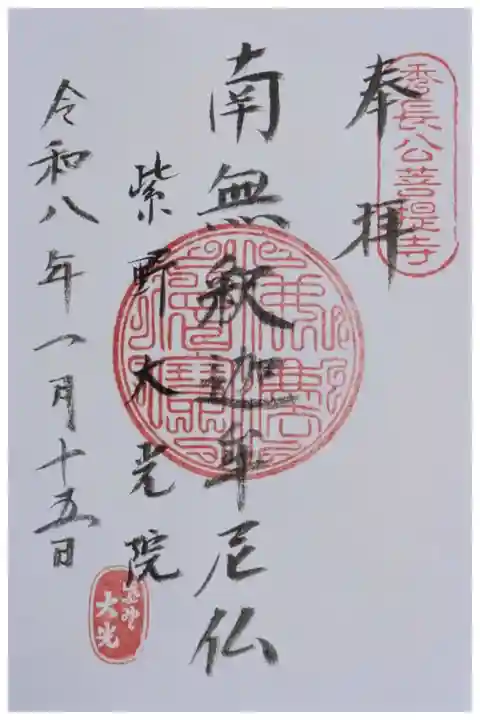 秀長公菩提寺
奉拝
南無釈迦牟尼仏
紫野大光院
令和八年一月十五日
大光